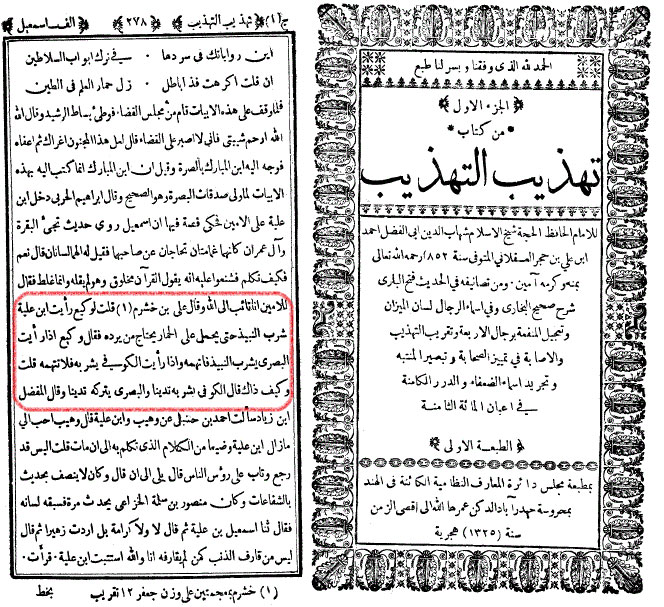 الحمد لله الذى وفقنا و يسر لنا طبع
الجزء الاول
من كتاب
تهذيب التهذيب
للامام الحافظ الحجة شيخ الاسلام شهاب الدين ابى الفضل احمد
ابن على بن حجر العسقلانى المتوفى سنة ٨٥٢ رحمه الله تعالى
بمنه و كرمه آمين . ومن تصانيفه فى الحديث فتح البارى
شرح صحيح البخارى وفى اسماء الرجال لسان الميزان
وتعجيل المنفعة برجال الاربعة وتقريب التهذيب
والاصابة فى تمييز الصحابة و تبصير المنتبه
و تجريد اسماء الضعفاء و الدرر الكامنة
فى اعيان المائة الثامنة
الطبعة الاولى
بمطبعة مجلس دائرة المعارف النظامية الكائنة فى الهند
بمحروسة حيدرآباد الدكن عمرها الله الى اقصى الزمن
سنة (١٣٢٥) هجرية
ج (١) تهذيب التهذيب ٢٧٨ الف اسمعيل
اين رواياتك فى سردها فى ترك ابواب السلاطين
ان قلت اكرهت فذا باطل زل حمار العلم فى الطين
فلما وقف على هذه الابيات قام من مجلس القضاء فوطى بساط الرشيد وقال الله
الله ارحم شيبتى فانى لا اصبر على القضاء قال لعل هذا المجنون اغراك ثم اعفاه
فوجه اليه ابن المبارك بالصرة وقيل ان ابن المبارك انما كتب اليه بهذه
الابيات لما ولى صدقات البصرة وهو الصحيح وقال ابراهيم الحربى دخل ابن
علية على الامين فحكى قصة فيها ان اسمعيل روى حديث تجئ البقرة
وآل عمران كانهما غمامتان تحاجان عن صاحبهما فقيل له الهما لسانان قال نعم
فكيف تكلم فشنعوا عليه انه يقول القرآن مخلوق وهو لم يقله وانما غلط فقال
للامين انا تائب الى الله وقال على بن خشرم (١) قلت لوكيع رأيت ابن علية
شرب النبيذ حتى يحمل على الحمار يحتاج من يرده فقال وكيع اذا رأيت
البصرى يشرب النبيذ فاتهمه واذا رأيت الكوفى يشربه فلا تتهمه قلت
وكيف ذاك قال الكوفى يشربه تدينا والبصرى يتركه تدينا وقال المفضل
ابن زياد سألت احمد بن حنبل عن وهيب وابن علية قال وهيب احب الى
مازال ابن علية وضيعا من الكلام الذى تكلم به الى ان مات قلت اليس قد
رجع وتاب على رؤس الناس قال بلى الى ان قال وكان لا ينصف بحديث
بالشفاعات وكان منصور بن سلمة الخزاعى يحدث مرة فسبقه لسانه
فقال ثنا اسمعيل بن علية ثم قال لا ولا كرامة بل اردت زهيرا ثم قال
ليس من قارف الذنب كمن لم يقارفه انا والله استتبت ابن علية . قرأت .
(١) خشرم بمعجمتين على وزن جعفر ١٢ تقريب بخط